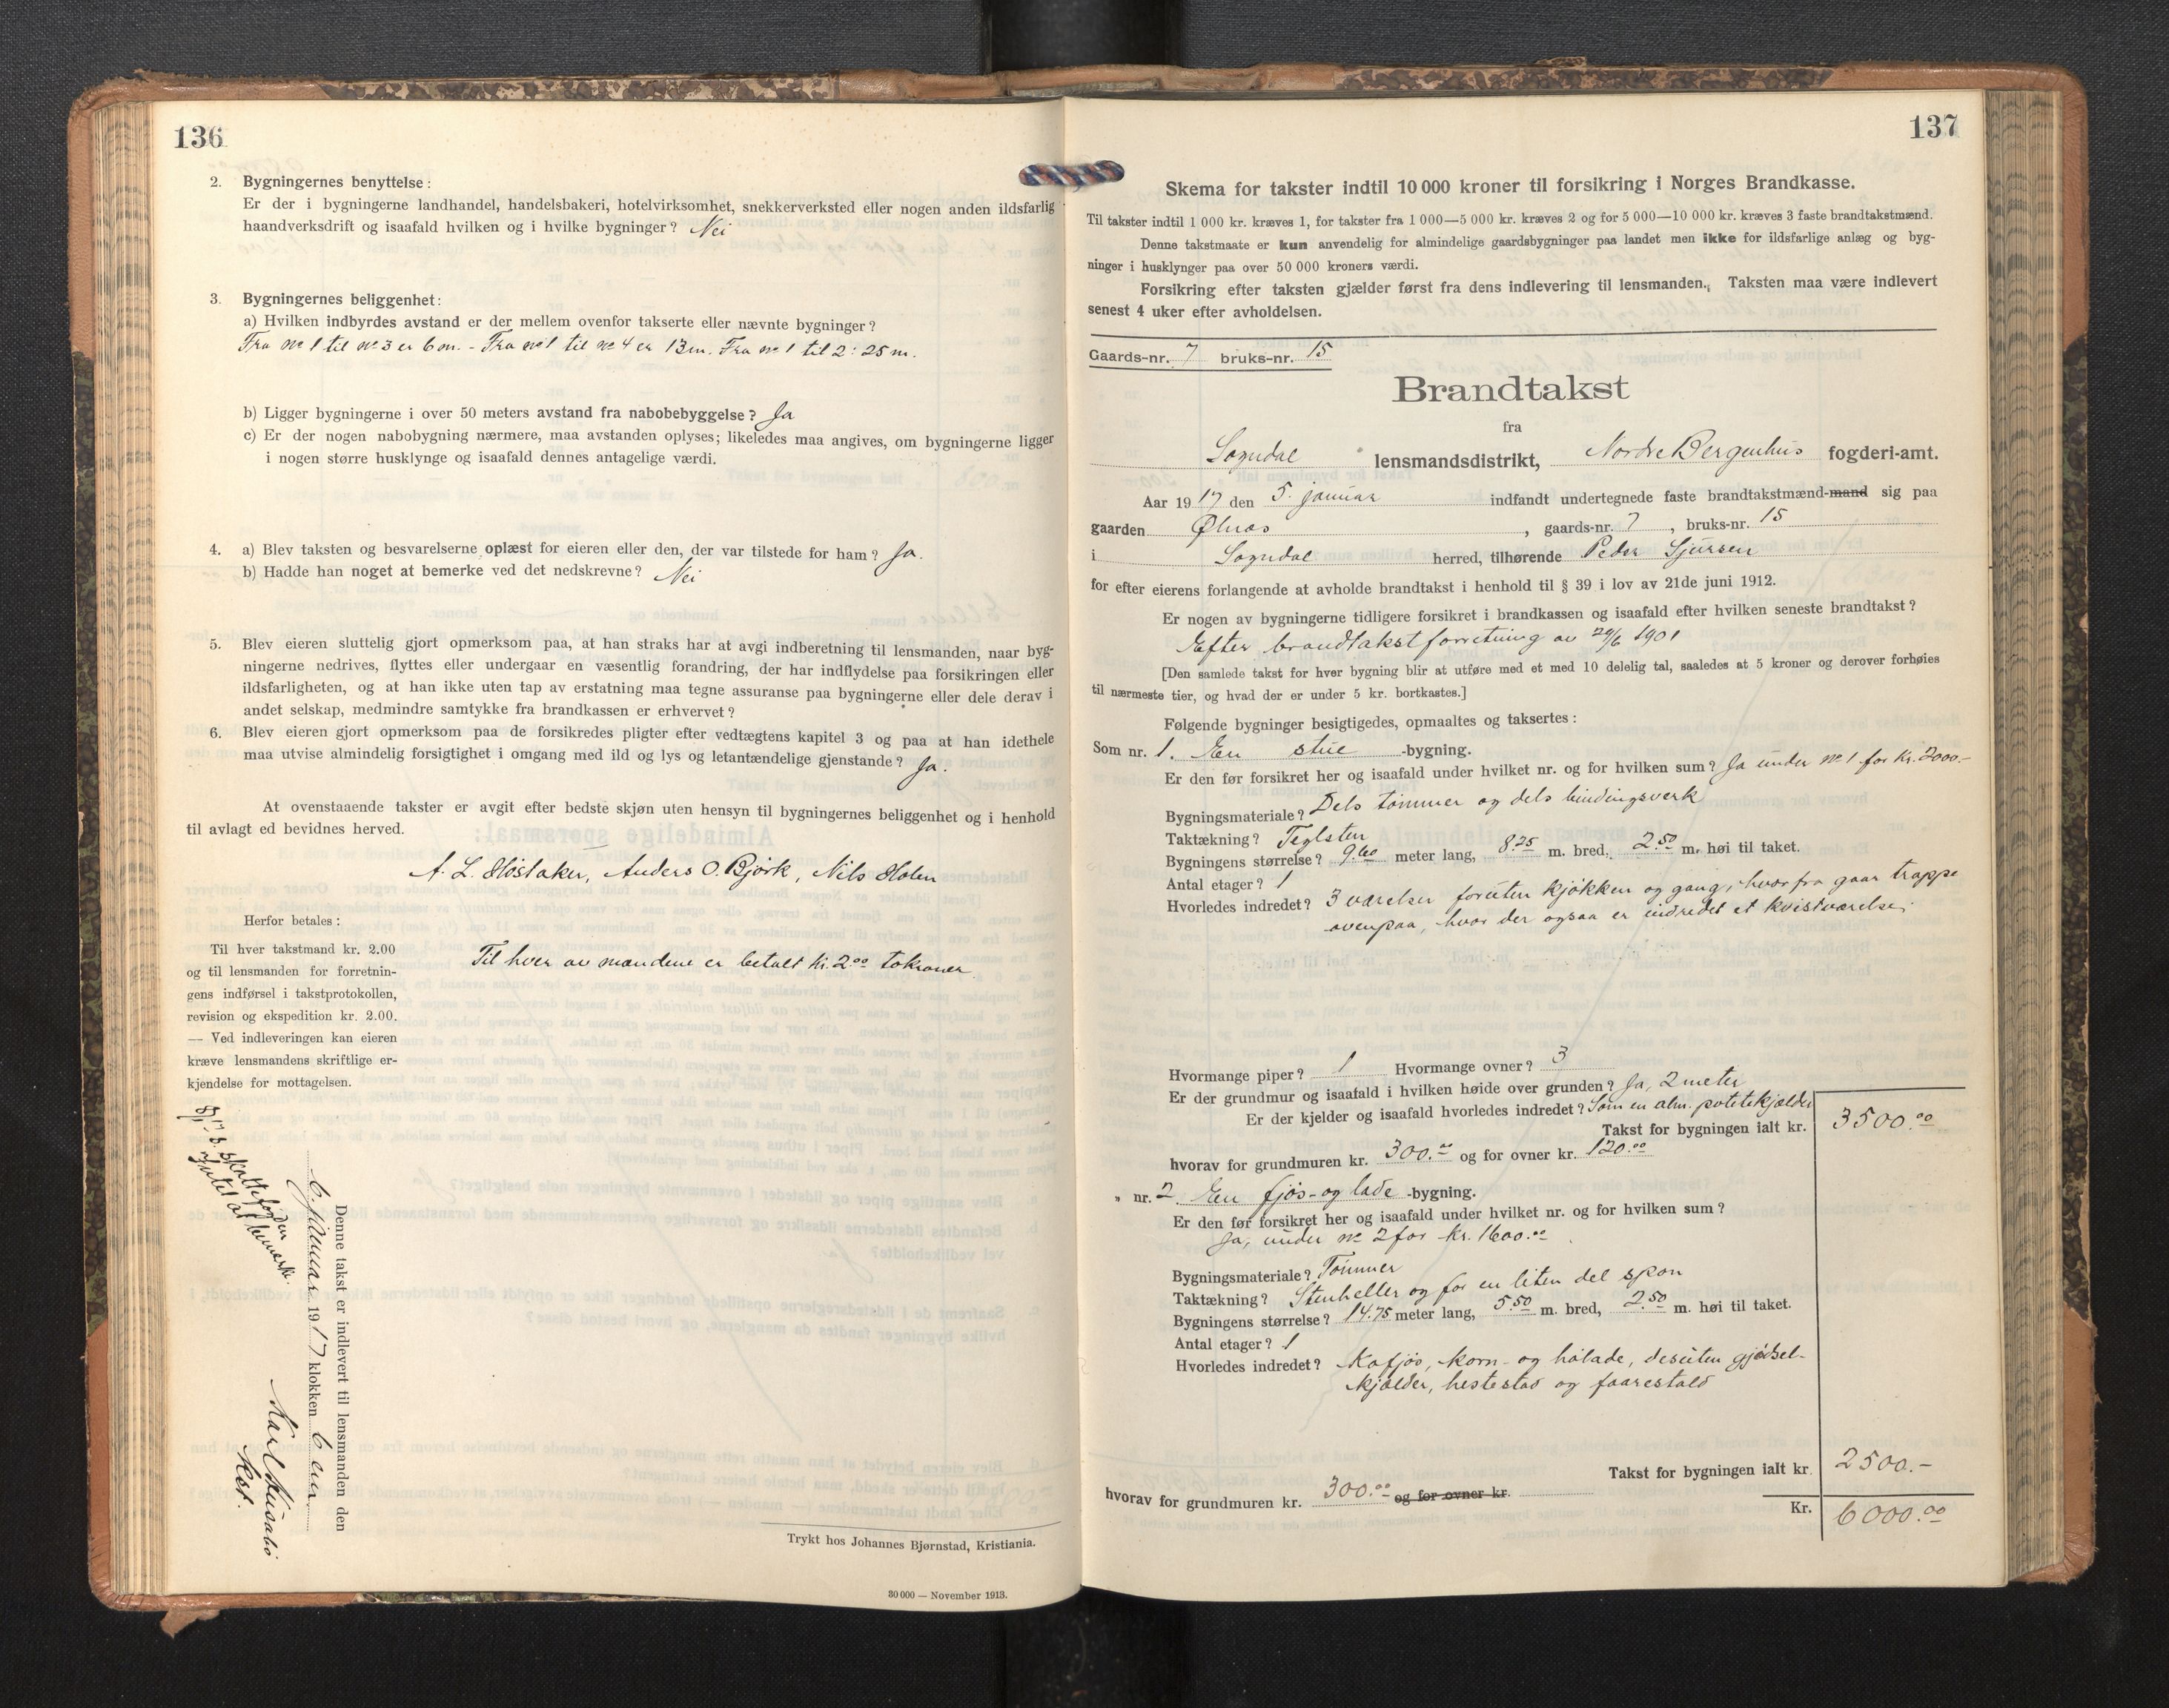 136
2. Bygningernes benyttelse:
Er der i bygningerne landhandel, handelsbakeri, hotelvirksomhet, snekkerverksted eller nogen anden ildsfarlig
haandverksdrift og isaafald hvilken og i hvilke bygninger? Nei
3. Bygningernes beliggenhet:
a) Hvilken indbyrdes avstand er der mellem ovenfor takserte eller nævnte bygninger?
Fra no 1 til no 3 er 6 m. - Fra no 1 til no 4 er 13 m. Fra no 1 til 2: 25 m.
b) Ligger bygningerne i over 50 meters avstand fra nabobebyggelse? Ja
c) Er der nogen nabobygning nærmere, maa avstanden oplyses; likeledes maa angives, om bygningerne ligger
i nogen større husklynge og isaafald dennes antagelige værdi.
4. a) Blev taksten og besvarelserne oplæst for eieren eller den, der var tilstede for ham? Ja.
b) Hadde han noget at bemerke ved det nedskrevne? Nei
5. Blev eieren sluttelig gjort opmerksom paa, at han straks har at avgi indberetning til lensmanden, naar byg-
ningerne nedrives, flyttes eller undergaar en væsentlig forandring, der har indflydelse paa forsikringen eller
ildsfarligheten, og at han ikke uten tap av erstatning maa tegne assuranse paa bygningerne eller dele derav i
andet selskap, medmindre samtykke fra brandkassen er erhvervet?
6. Blev eieren gjort opmerksom paa de forsikredes pligter efter vedtægtens kapitel 3 og paa at han idethele
maa utvise almindelig forsigtighet i omgang med ild og lys og letantændelige gjenstande? Ja.
At ovenstaaende takster er avgit efter bedste skjøn uten hensyn til bygningernes beliggenhet og i henhold
til avlagt ed bevidnes herved.
A. L. Høstaker, Anders O. Bjørk, Nils Holen
Herfor betales:
Til hver takstmand kr. 2.00
og til lensmanden for forretnin-
gens indførsel i takstprotokollen,
revision og ekspedition kr. 2.00.
— Ved indleveringen kan eieren
kræve lensmandens skriftlige er-
kjendelse for mottagelsen.
Til hver av mændene er betalt kr. 2.00 tokroner
Denne takst er indlevert til lensmanden den
6. januar 1917 klokken 6 em.
Karl Husabø
kst.
skattefogden
intet at bemerke.
Trykt hos Johannes Bjørnstad, Kristiania.
30 000 — November 1913.
137
Skema for takster indtil 10 000 kroner til forsikring i Norges Brandkasse.
Til takster indtil 1 000 kr. kræves 1, for takster fra 1 000—5 000 kr. kræves 2 og for 5 000—10 000 kr. kræves 3 faste brandtakstmænd.
Denne takstmaate er kun anvendelig for almindelige gaardsbygninger paa landet men ikke for ildsfarlige anlæg og byg-
ninger i husklynger paa over 50 000 kroners værdi.
Forsikring efter taksten gjælder først fra dens indlevering til lensmanden. Taksten maa være indlevert
senest 4 uker efter avholdelsen.
Gaards-nr. 7 bruks-nr. 15
Brandtakst
fra
Sogndal lensmandsdistrikt, Nordre Bergenhus fogderi-amt.
Aar 1917 den 5. januar indfandt undertegnede faste brandtakstmænd-mand sig paa
gaarden Ølnæs, gaards-nr. 7, bruks-nr. 15
i Sogndal herred, tilhørende Peder Sjursen
for efter eierens forlangende at avholde brandtakst i henhold til § 39 i lov av 21de juni 1912.
Er nogen av bygningerne tidligere forsikret i brandkassen og isaafald efter hvilken seneste brandtakst?
Efter brandtakstforretning av 29/6 1901
[Den samlede takst for hver bygning blir at utføre med et med 10 delelig tal, saaledes at 5 kroner og derover forhøies
til nærmeste tier, og hvad der er under 5 kr. bortkastes.]
Følgende bygninger besigtigedes, opmaaltes og taksertes:
Som nr. 1. En stue -bygning.
Er den før forsikret her og isaafald under hvilket nr. og for hvilken sum? Ja under no 1 for kr. 2000.-
Bygningsmateriale? Dels tømmer og dels bindingsverk
Taktækning? Teglsten
Bygningens størrelse? 9.60 meter lang, 8.25 m. bred, 2.50 m. høi til taket.
Antal etager? 1
Hvorledes indredet? 3 værelser foruten kjøkken og gang, hvorfra gaar trappe
ovenpaa, hvor der ogsaa er indredet et kvistværelse.
Hvormange piper? 1 Hvormange ovner? 3
Er der grundmur og isaafald i hvilken høide over grunden? Ja, 2 meter
Er der kjelder og isaafald hvorledes indredet? Som en alm. potetekjælder
Takst for bygningen ialt kr. 3500.00
hvorav for grundmuren kr. 300.00 og for ovner kr. 120.00
" nr. 2. En fjøs- og lade -bygning.
Er den før forsikret her og isaafald under hvilket nr. og for hvilken sum?
Ja, under no 2 for kr. 1600.00
Bygningsmateriale? Tømmer
Taktækning? Stenheller og for en liten del spon
Bygningens størrelse? 14.75 meter lang, 5.50 m. bred, 2.50 m. høi til taket.
Antal etager? 1
Hvorledes indredet? Kofjøs, korn- og hølade, desuten gjødsel-
kjælder, hestestad og faarestald
Takst for bygningen ialt kr. 2500.-
hvorav for grundmuren kr. 300.00 og for ovner kr.
Kr. 6000.00